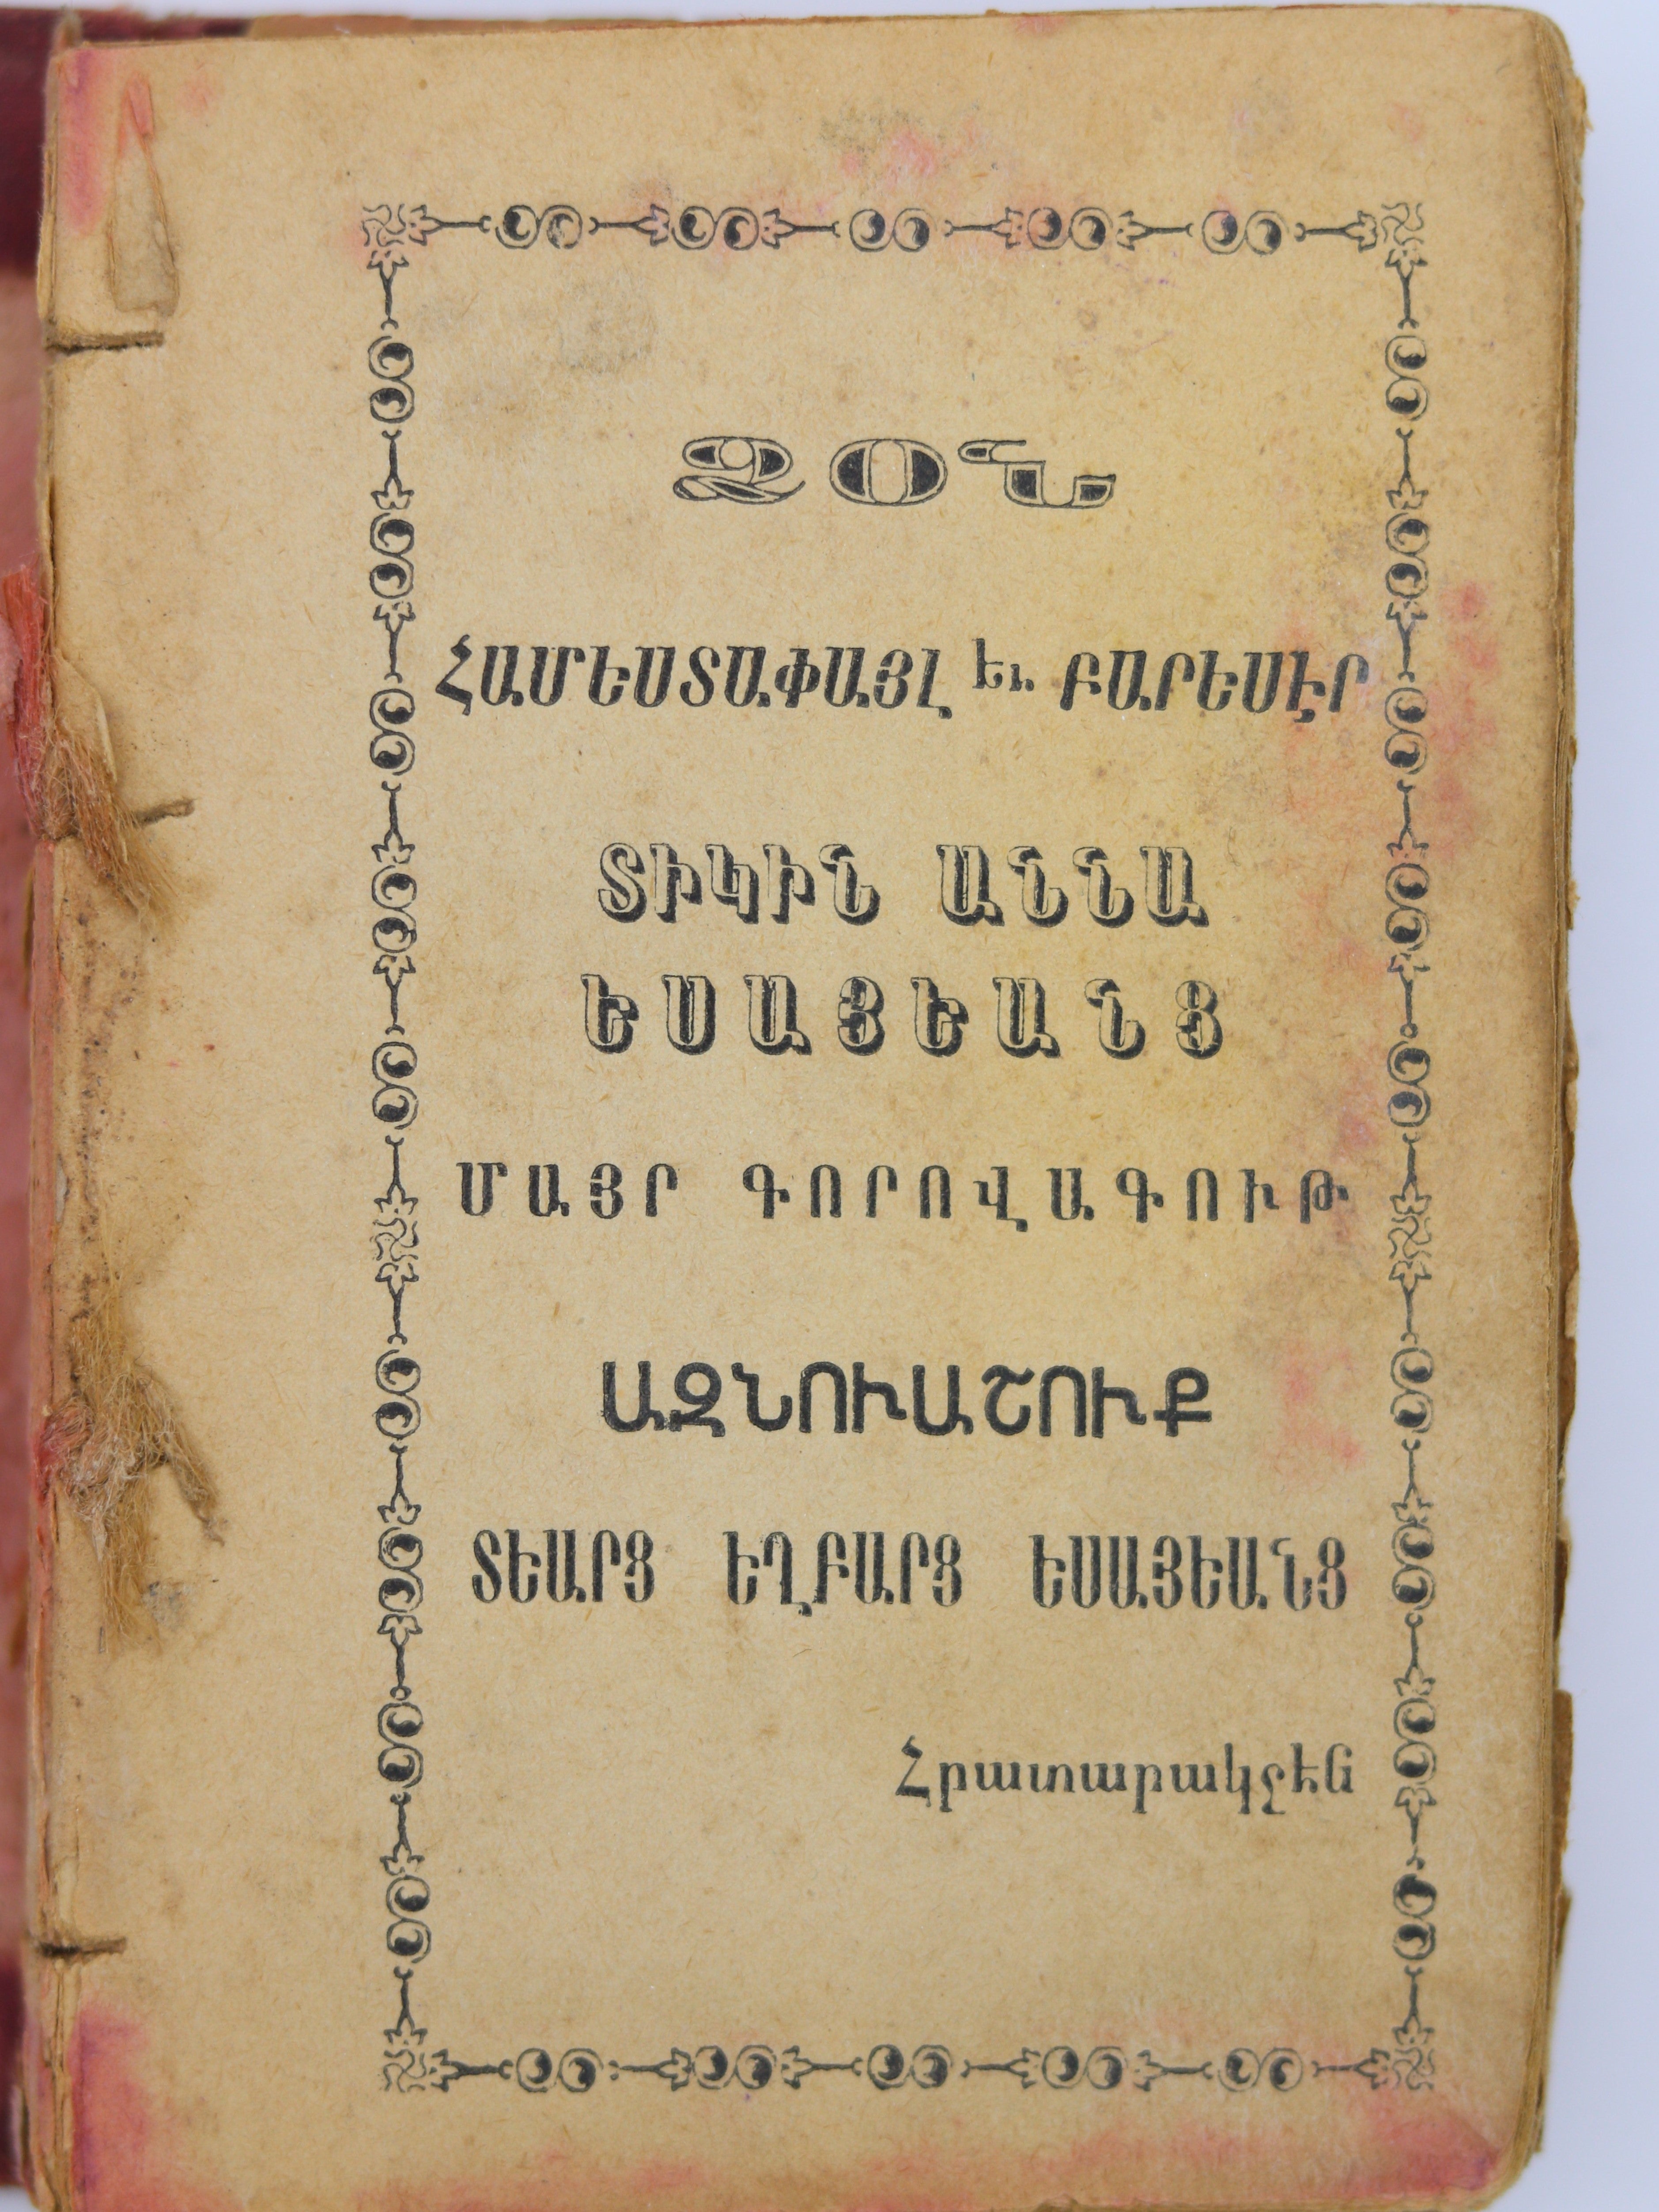 ՁՕՆ
ՀԱՄԵՍՏԱՓԱՅԼ եւ ԲԱՐԵՍԷՐ
ՏԻԿԻՆ ԱՆՆԱ
ԵՍԱՅԵԱՆՑ
ՄԱՅՐ ԳՈՐՈՎԱԳՈՒԹ
ԱԶՆՈՒԱՇՈՒՔ
ՏԵԱՐՑ ԵՂԲԱՐՑ ԵՍԱՅԵԱՆՑ
Հրատարակչէն